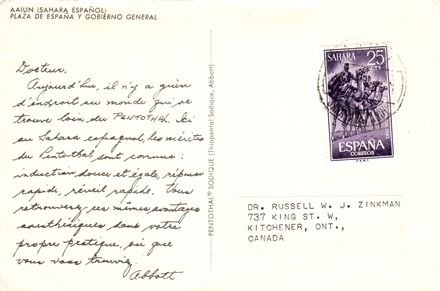 AAIUN (SAHARA ESPAÑOL)
PLAZA DE ESPAÑA Y GOBIERNO GENERAL
Docteur,
Aujourd'hui, il n'y a guère
d'endroit au monde qui se
trouve loin du PENTOTHAL. Ici
au Sahara espagnol, les mérites
du Pentothal sont connus:
induction douce et égale, réponse
rapide, réveil rapide. Vous
retrouverez ces mêmes avantages
anesthésiques dans votre
propre pratique, où que
vous vous trouviez.
Abbott
PENTOTHAL® SODIQUE (Thiopental Sodique, Abbott)
SAHARA 25
CTS
ESPAÑA
CORREOS
DR. RUSSELL W. J. ZINKMAN
737 KING ST. W,
KITCHENER, ONT.,
CANADA